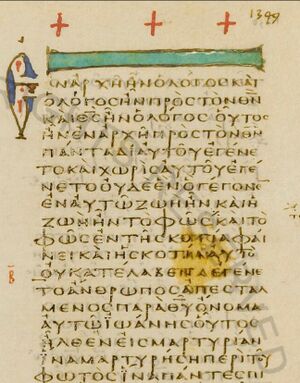 1349
ΕΝΑΡΧΗΗΝΟΛΟΓΟϹΚΑΙ
ΟΛΟΓΟϹΗΝΠΡΟϹΤΟΝΘΝ
ΚΑΙΘϹΗΝΟΛΟΓΟϹΟΥΤΟϹ
ΗΝΕΝΑΡΧΗΠΡΟϹΤΟΝΘΝ
ΠΑΝΤΑΔΙΑΥΤΟΥΕΓΕΝΕ
ΤΟΚΑΙΧΩΡΙϹΑΥΤΟΥΕΓΕ
ΝΕΤΟΟΥΔΕΕΝΟΓΕΓΟΝΕΝ
ΕΝΑΥΤΩΖΩΗΗΝΚΑΙΗ
ΖΩΗΗΝΤΟΦΩϹΚΑΙΤΟ
ΦΩϹΕΝΤΗϹΚΟΤΙΑΦΑΙ
ΝΕΙΚΑΙΗϹΚΟΤΙΑΑΥΤΟ
Β
ΟΥΚΑΤΕΛΑΒΕΝΕΓΕΝΕ
ΤΟΑΝΘΡΩΠΟϹΑΠΕϹΤΑΛ
ΜΕΝΟϹΠΑΡΑΘΥΟΝΟΜΑ
ΑΥΤΩΙΩΑΝΗϹΟΥΤΟϹ
ΗΛΘΕΝΕΙϹΜΑΡΤΥΡΙΑΝ
ΙΝΑΜΑΡΤΥΡΗϹΗΠΕΡΙΤΟΥ
ΦΩΤΟϹΙΝΑΠΑΝΤΕϹΠΙ